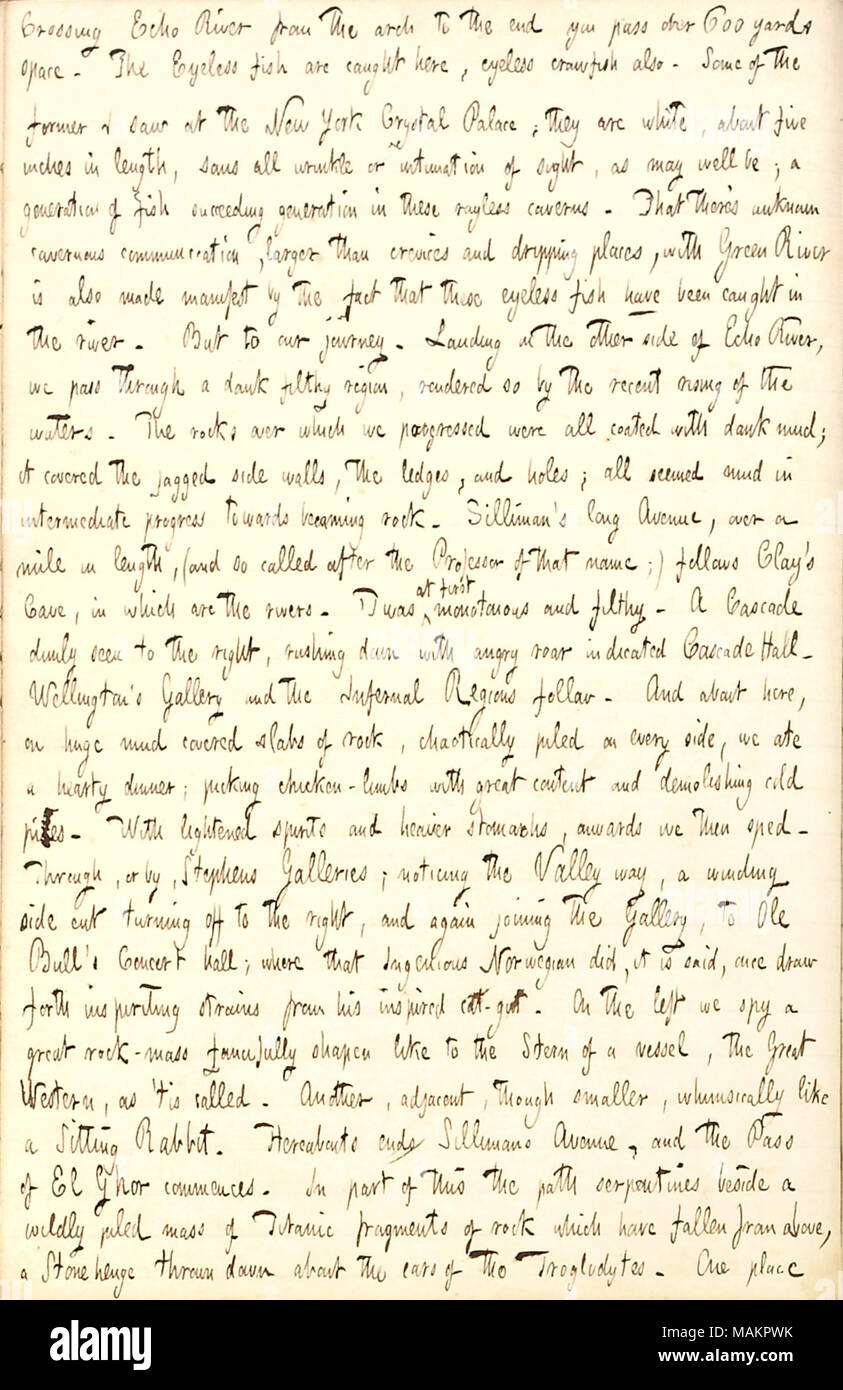 Crossing Echo River from the arch to the end you pass over 600 yards
space - The Eyeless fish are caught here, eyeless crawfish also - Some of the
former I saw at the New York Crystal Palace; they are white, about five
inches in length, sans all wrinkle or intimation of sight, as may well be; a
generation of fish succeeding generation in these rayless caverns - That there's unknown
cavernous communication, larger than crevices and dripping places, with Green River
is also made manifest by the fact that these eyeless fish have been caught in
the river - But to our journey - Landing on the other side of Echo River,
we pass through a dank filthy region, rendered so by the recent rising of the
waters - The rocks over which we progressed were all coated with dank mud;
it covered the jagged side walls, the ledges, and holes; all seemed mud in
intermediate progress towards becoming rock - Silliman's long Avenue, over a
mile in length, (and so called after the Professor of that name;) follows Clay's
Cave, in which are the rivers - Twas at first monotonous and filthy - A Cascade
dimly seen to the right, rushing down with angry roar indicated Cascade Hall -
Wellington's Gallery and the Infernal Regions follow - And about here,
on huge mud covered slabs of rock, chaotically piled on every side, we ate
a hearty dinner; picking chicken-limbs with great content and demolishing cold
pies - With lightened spirits and heavier stomachs, onwards we then sped -
Through, or by, Stephens Galleries; noticing the Valley way, a winding
side cut turning off to the right, and again joining the Gallery, to Ole
Bull's Concert hall; where that Ingenious Norwegian did, it is said, once draw
forth inspiriting strains from his inspired cat-gut. On the left we spy a
great rock-mass fancifully shapen like to the Stern of a vessel, the Great
Western, as 'tis called - Another, adjacent, though smaller, whimsically like
a Sitting Rabbit. Hereabouts ends Sillimans Avenue, and the Pass
of El Ghor commences - In part of this the path serpentines beside a
wildly piled mass of Titanic fragments of rock which have fallen from above,
a Stone henge thrown down about the ears of the Troglodytes - One place
alamy
Image ID: MAKPWK
www.alamy.com